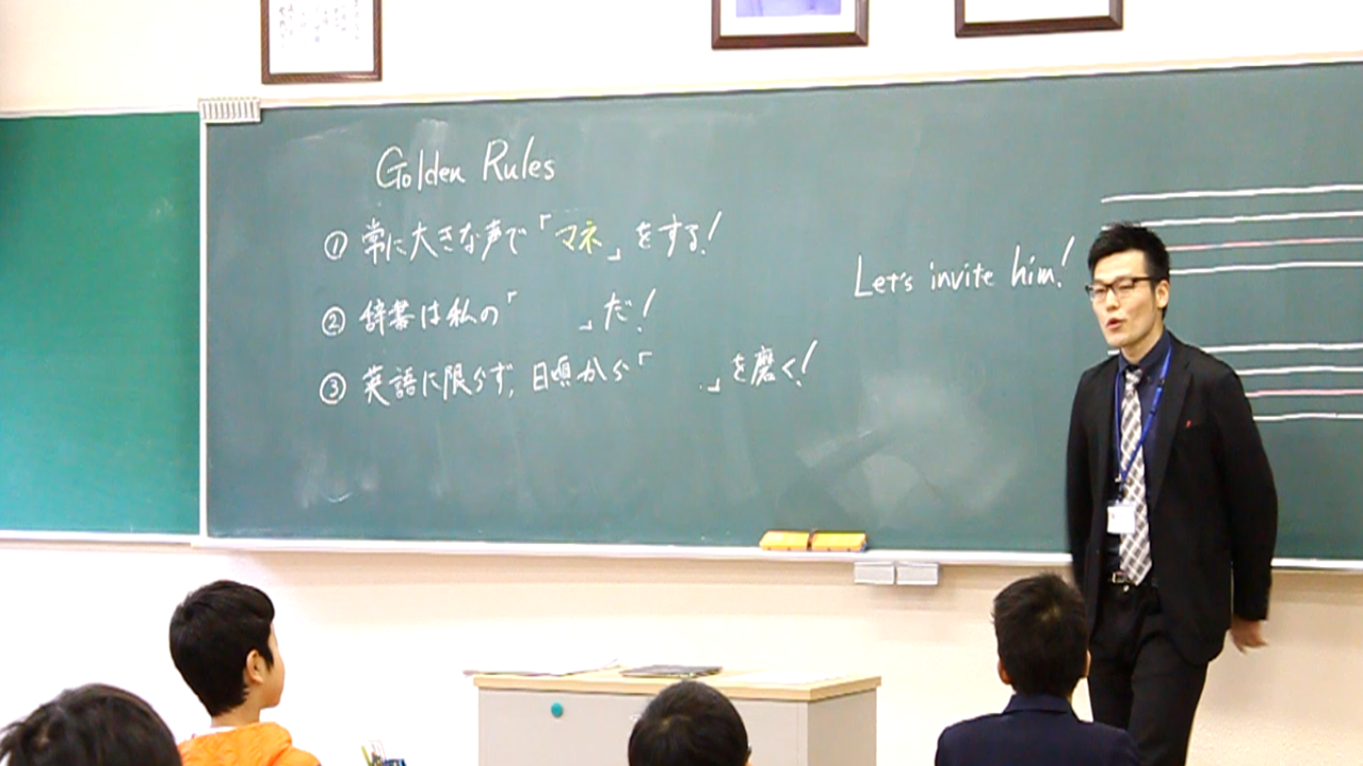 Golden Rules
① 常に大きな声で「マネ」をする!
② 辞書は私の「　　」だ!
③ 英語に限らず, 日頃から「　　」を磨く!
Let's invite him!